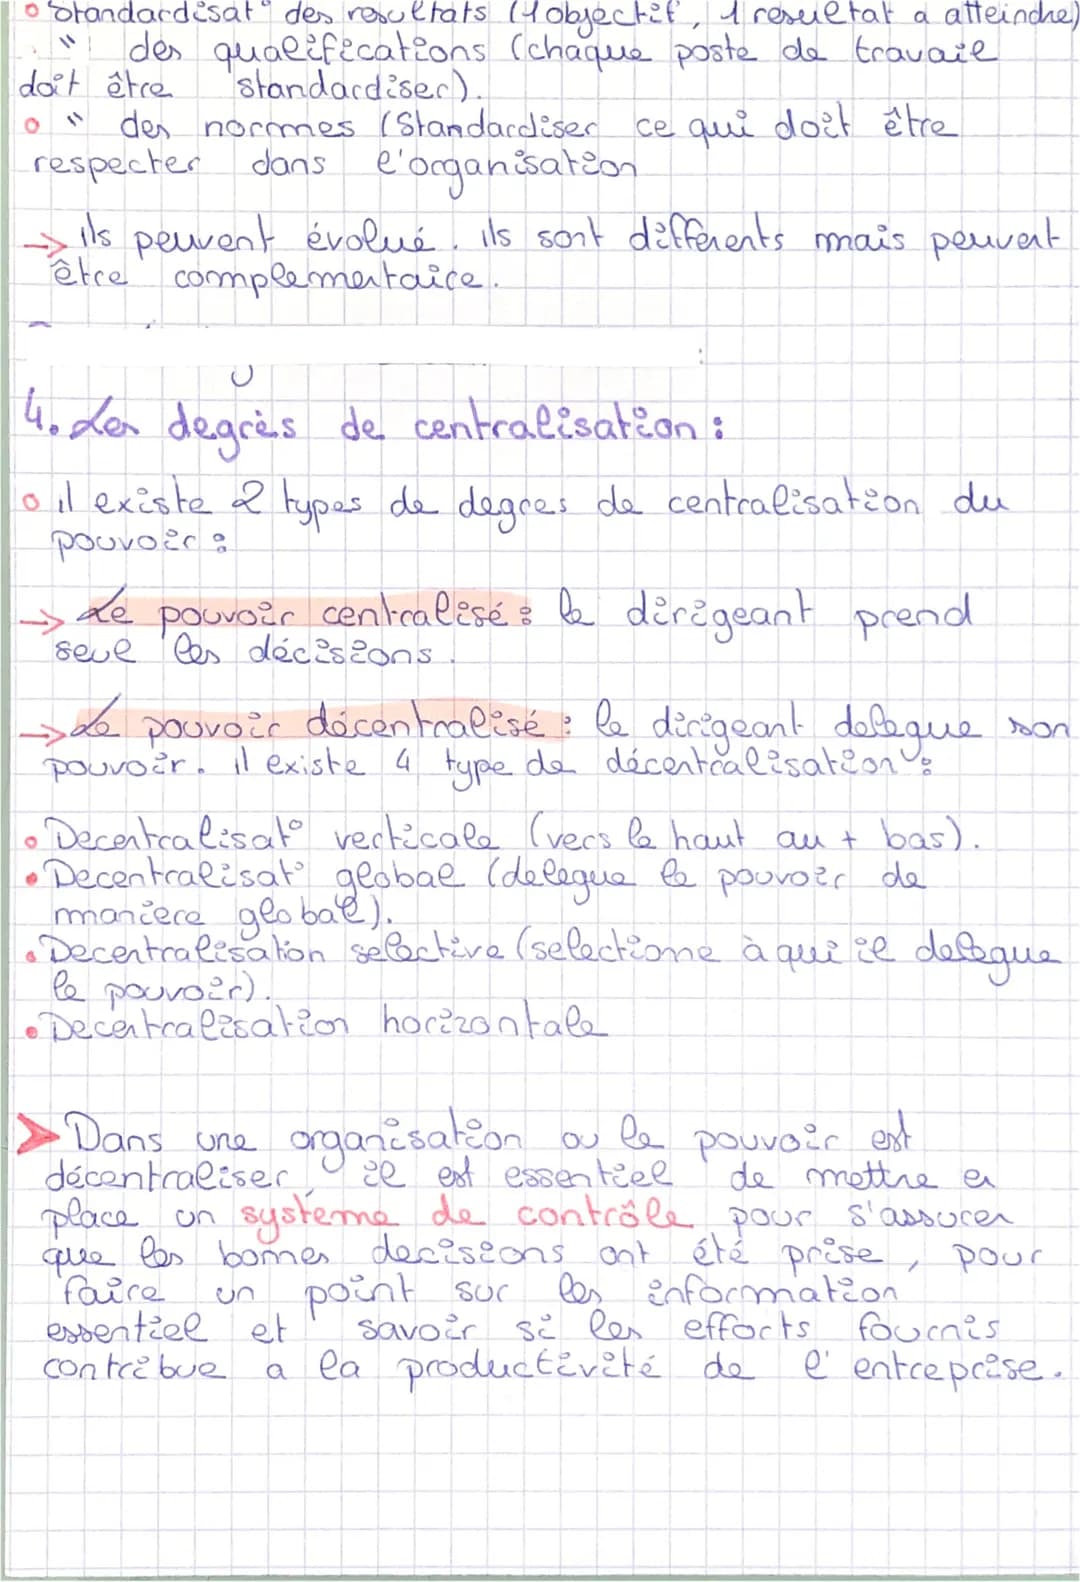 o Standardisat° des resultats (1 objectif, 1 resultat a atteindre)
" des qualifications (chaque poste de travail
doit être standardiser).
o " des normes (Standardiser ce qui doit être
respecter dans l'organisation
→ ils peuvent évolué. ils sont différents mais peuvent
être complementaire.
4. Les degrès de centralisation :
o il existe 2 types de degres de centralisation du
pouvoir :
→ Le pouvoir centralisé : le dirigeant prend
seul les décisions.
→ Le pouvoir décentralisé : le dirigeant delegue son
pouvoir. il existe 4 type de décentralisation :
• Decentralisat° verticale (vers le haut au + bas).
• Decentralisat° global (delegue le pouvoir de
maniere global).
• Decentralisation selective (selectionne à qui il delegue
le pouvoir).
• Decentralisation horizontale
➤ Dans une organisation ou le pouvoir est
décentraliser, il est essentiel de mettre en
place un système de contrôle pour s'assurer
que les bonnes decisions ont été prise, pour
faire un point sur les information
essentiel et savoir si les efforts fournis
contribue a la productivité de l'entreprise.